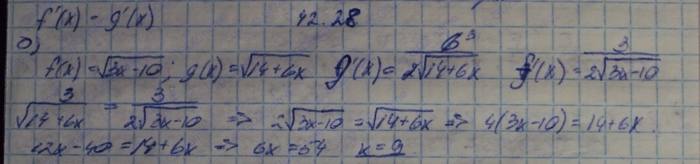 f'(x) - g'(x) 42.28
б)
f(x) = √3x-10; g(x) = √14+6x g'(x) = 6³/2√14+6x f'(x) = 3/2√3x-10
3/√14+6x = 3/2√3x-10 => 2√3x-10 = √14+6x => 4(3x-10) = 14+6x.
12x-40 = 14+6x => 6x = 54 x = 9